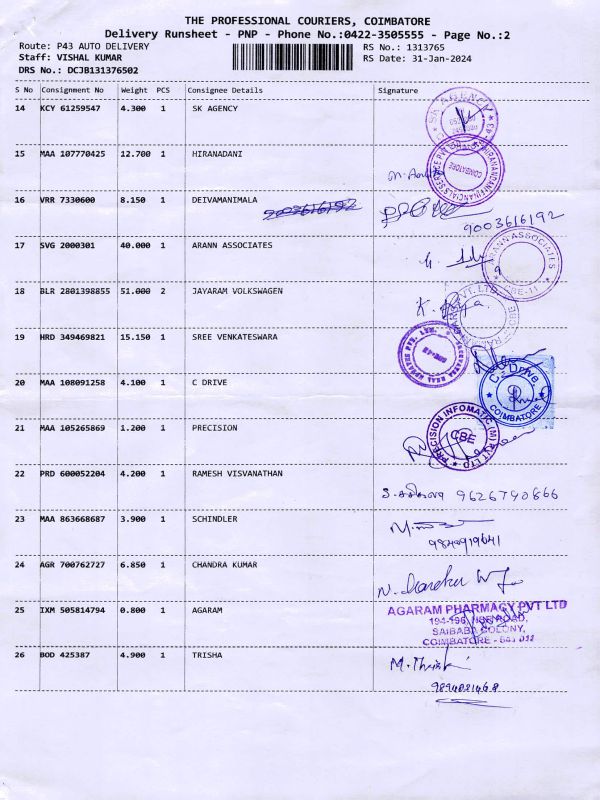 THE PROFESSIONAL COURIERS, COIMBATORE
Delivery Runsheet - PNP - Phone No.:0422-3505555 - Page No.:2
Route: P43 AUTO DELIVERY RS No.: 1313765
Staff: VISHAL KUMAR RS Date: 31-Jan-2024
DRS No.: DCJB131376502
S No Consignment No Weight PCS Consignee Details Signature
14 KCY 61259547 4.300 1 SK AGENCY
SK AGENCY
15 MAA 107770425 12.700 1 HIRANADANI
COIMBATORE
16 VRR 7330600 8.150 1 DEIVAMANIMALA 9003616192
9003616192
17 SVG 2000301 40.000 1 ARANN ASSOCIATES
ARANN ASSOCIATES
CBE-11
18 BLR 2801398855 51.000 2 JAYARAM VOLKSWAGEN
19 HRD 349469821 15.150 1 SREE VENKATESWARA
20 MAA 108091258 4.100 1 C DRIVE
C-Drive
COIMBATORE
21 MAA 105265869 1.200 1 PRECISION
PRECISION INFOMATIC (M) PVT LTD
CBE
22 PRD 600052204 4.200 1 RAMESH VISVANATHAN
9626740866
23 MAA 863668687 3.900 1 SCHINDLER
24 AGR 700762727 6.850 1 CHANDRA KUMAR
25 IXM 505814794 0.800 1 AGARAM
AGARAM PHARMACY PVT LTD
SAIBABA COLONY,
COIMBATORE
26 BOD 425387 4.900 1 TRISHA